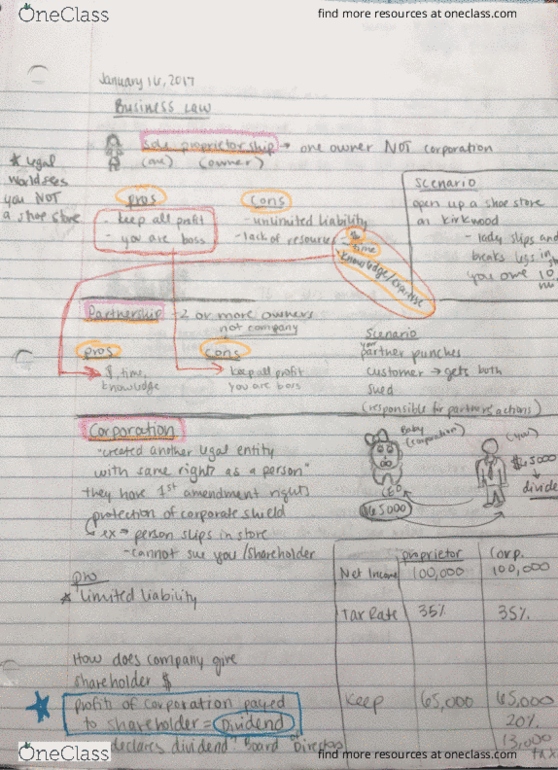 OneClass
find more resources at oneclass.com
January 16, 2017
Business Law
sole proprietorship → one owner NOT corporation
(one) (owner)
* Legal
world sees
you NOT
a shoe store
pros
- keep all profit
- you are boss
cons
- unlimited liability
- lack of resources
- $
- time
- knowledge/expertise
scenario
open up a shoe store
on Kirkwood
- lady slips and
breaks legs in
you owe 10
Partnership - 2 or more owners
not company
pros
$, time,
knowledge
cons
keep all profit
you are boss
Scenario
your
partner punches
customer → gets both
sued
(responsible for partners actions)
Corporation
"created another legal entity
with same rights as a person"
they have 1st amendment rights
protection of corporate shield
ex → person slips in store
- cannot sue you/shareholder
Baby
(corporation)
(you)
CEO
$65000
$65000
divide
pro
* Limited liability
proprietor Corp.
Net Income 100,000 100,000
Tax Rate 35% 35%
Keep 65,000 65,000
20%
13,000
tax
How does company give
shareholder $
profits of corporation payed
to shareholder = Dividend
declares dividend "Board Director
OneClass
find more resources at oneclass.com